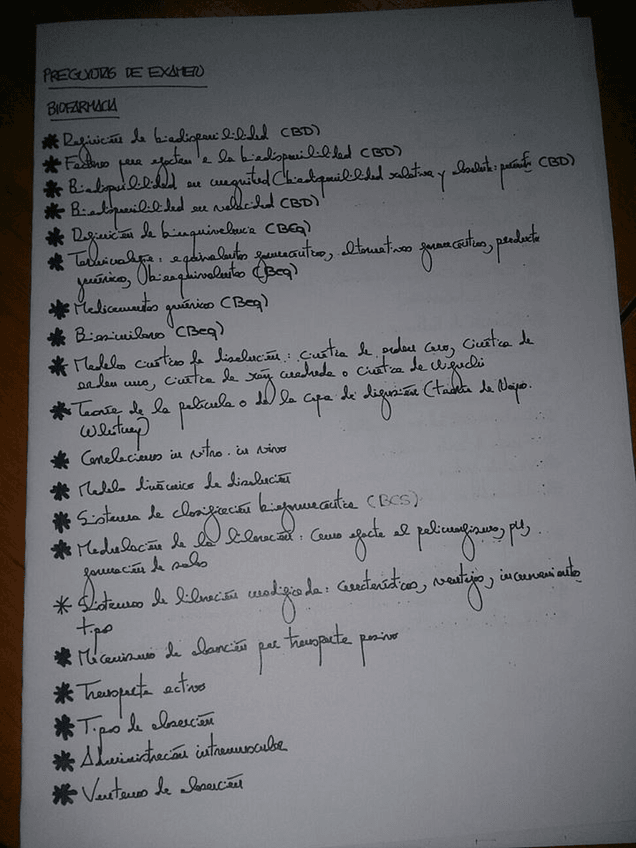 PREGUNTAS DE EXAMEN
BIOFARMACIA
* Definición de biodisponibilidad (BD)
* Factores que afectan a la biodisponibilidad (BD)
* Biodisponibilidad en magnitud (biodisponibilidad relativa y absoluta: (BD)
* Biodisponibilidad en velocidad (BD)
* Definición de bioequivalencia (BEq)
* Terminología: equivalentes farmacéuticos, alternativas farmacéuticas, producto
genérico, bioequivalentes (BEq)
* Medicamentos genéricos (BEq)
* Biosimilares (BEq)
* Modelos cinéticos de disolución: cinética de orden cero, cinética de
orden uno, cinética de raíz cuadrada o cinética de Higuchi
* Teoría de la película o de la capa de difusión (teoría de Noyes.
Whitney)
* Correlaciones in vitro. in vivo
* Modelo dinámico de disolución
* Sistema de clasificación biofarmacéutica (BCS)
* Modulación de la liberación: Como afecta el polimorfismo, pH,
formación de sales
* Sistemas de liberación modificada: características, ventajas, inconvenientes
tipos
* Mecanismos de absorción por transporte pasivo
* Transporte activo
* Tipos de absorción
* Administración intramuscular
* Ventanas de absorción